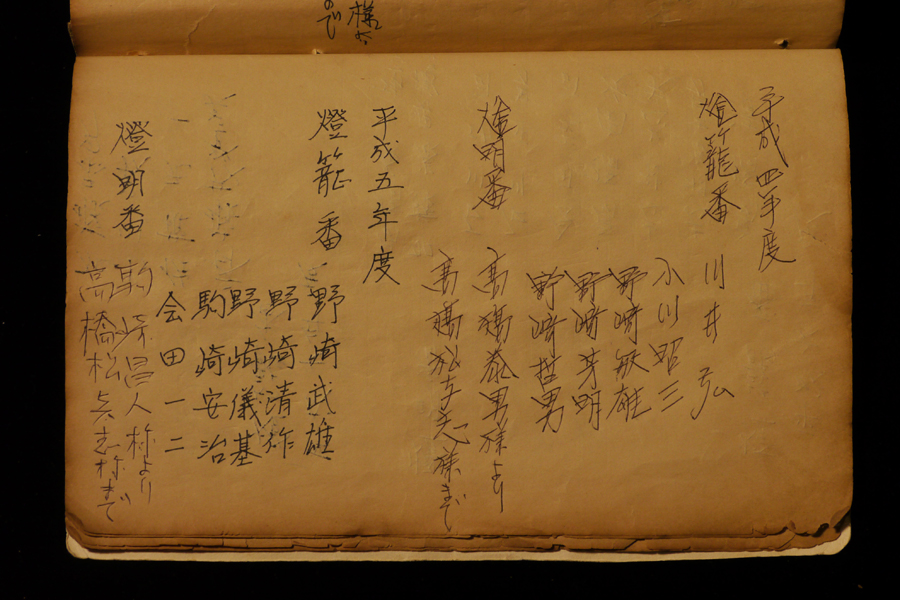 様よ
ので
平成四年度
燈籠番 川井弘
小川昭三
野崎敏雄
野崎芳明
野崎哲男
燈明番 高橋泰男様より
高橋松与志様まで
平成五年度
燈籠番 野崎武雄
野崎清作
野崎儀基
駒崎安治
会田一二
燈明番 昌人様より
高橋松与志様まで